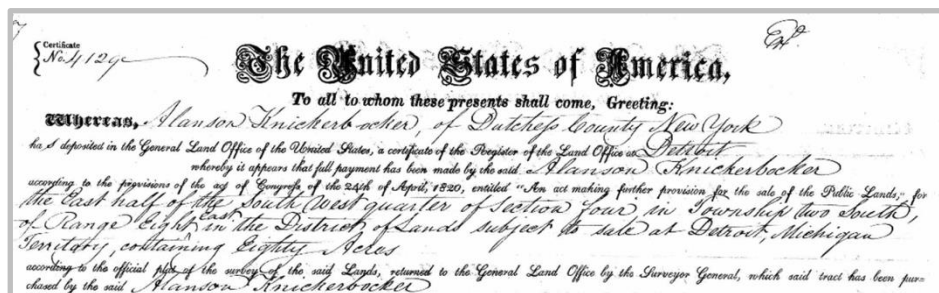 Certificate
No. 4129
Exd.
The United States of America,
To all to whom these presents shall come, Greeting:
Whereas, Alanson Knickerbocker, of Dutchess County New York
has deposited in the General Land Office of the United States, a certificate of the Register of the Land Office at Detroit
whereby it appears that full payment has been made by the said Alanson Knickerbocker
according to the provisions of the act of Congress of the 24th of April, 1820, entitled "An act making further provision for the sale of the Public Lands," for
the East half of the South West quarter of Section four in Township two South,
of Range Eight East in the District of Lands subject to sale at Detroit, Michigan
Territory, containing Eighty Acres
according to the official plat of the survey of the said Lands, returned to the General Land Office by the Surveyor General, which said tract has been pur=
chased by the said Alanson Knickerbocker